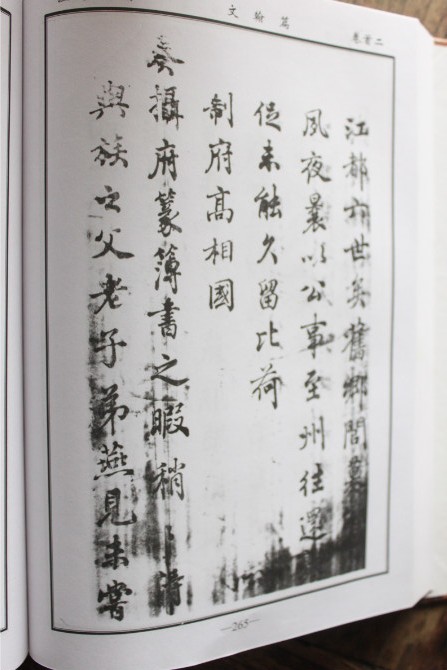 文翰篇
卷首二
江都六世矣舊鄉閭墓
夙夜曩以公事至州往還
促未能久留比荷
制府高相國
奏攝府篆簿書之暇稍〻清
與族之父老子弟燕見未嘗
—265—